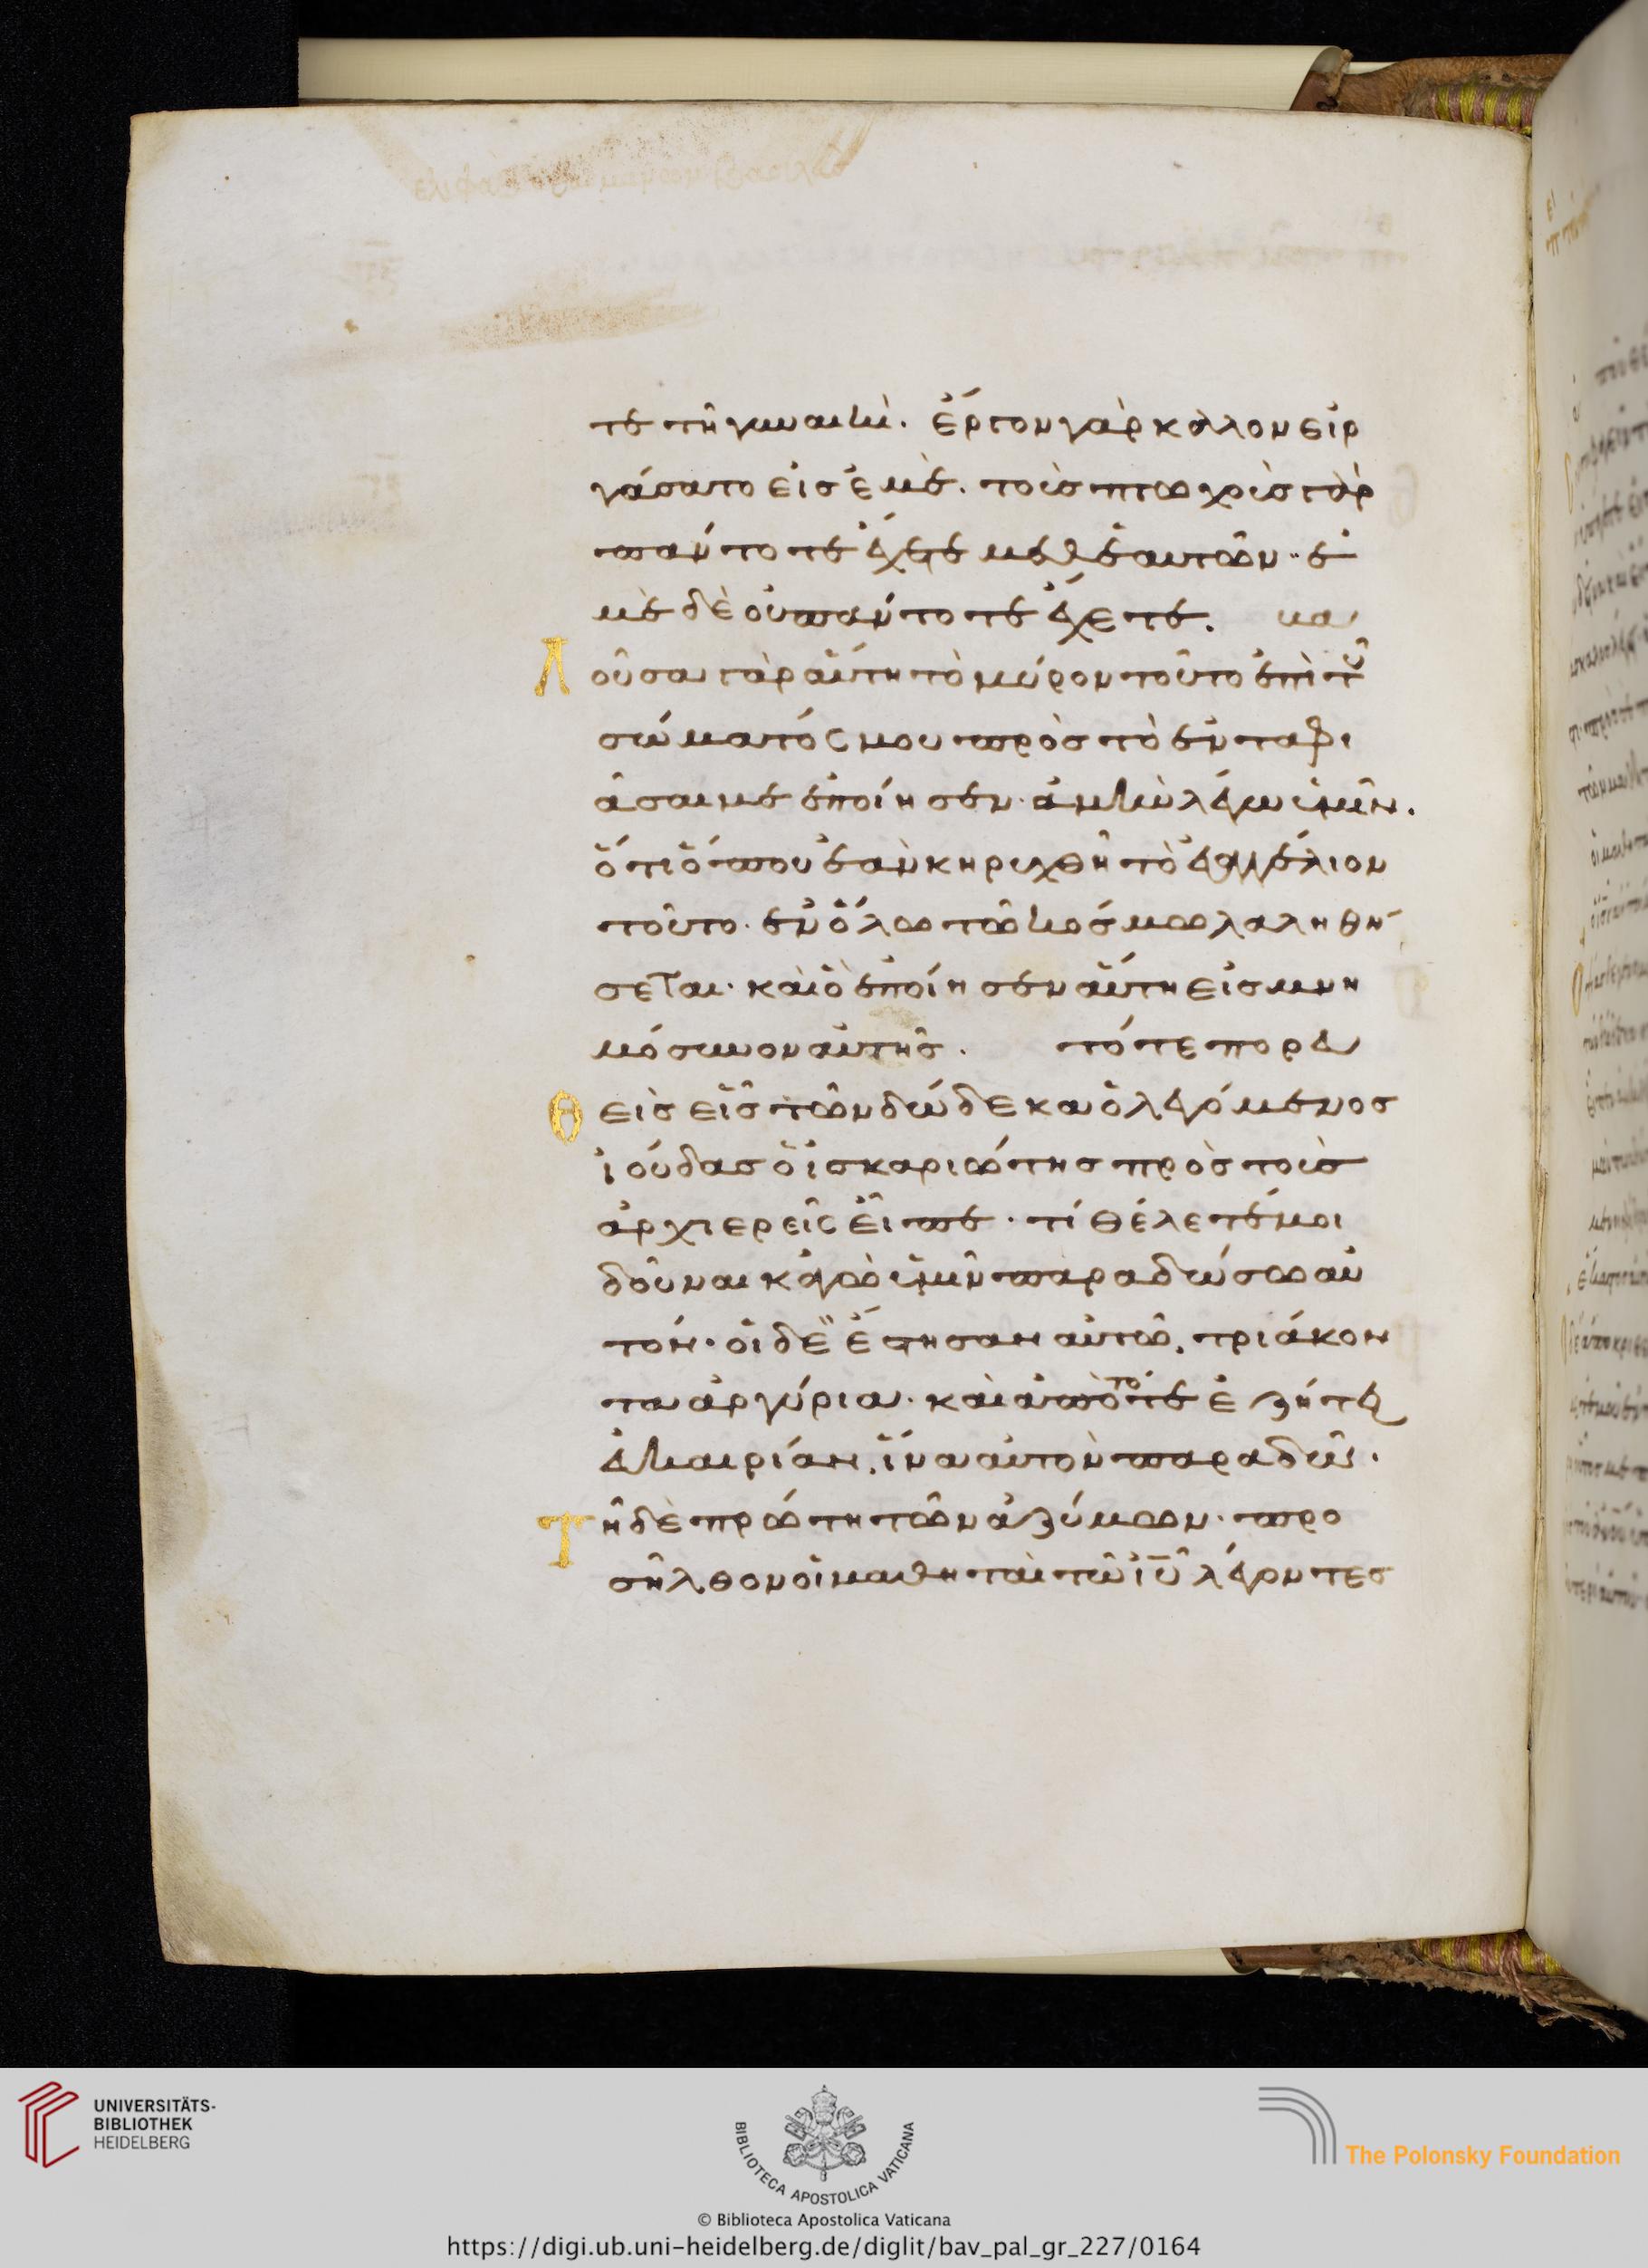 τε τῇ γυναικί. ἔργον γὰρ καλὸν εἰρ
γάσατο εἰς ἐμέ. τοὺς πτωχοὺς γὰρ
πάντοτε ἔχετε μεθ ἑαυτῶν· ἐ
μὲ δὲ οὐ πάντοτε ἔχετε. βα
Λοῦσα γὰρ αὕτη τὸ μύρον τοῦτο ἐπὶ τοῦ
σώματός μου πρὸς τὸ ἐνταφι
άσαι με ἐποίησεν· ἀμὴν λέγω ὑμῖν.
ὅτι ὅπου ἐὰν κηρυχθῇ τὸ εὐαγγέλιον
τοῦτο· ἐν ὅλω τῶ κόσμω λαληθή
σεται· καὶ ὃ ἐποίησεν αὕτη εἰς μνη
μόσυνον αὐτῆς. τότε πορευ
Θεὶς εἷς τῶν δώδεκα ὁ λεγόμενος
ἰούδας ὁ ἰσκαριώτης πρὸς τοὺς
ἀρχιερεῖς εἶπε· τί θέλετέ μοι
δοῦναι κἀγὼ ὑμῖν παραδώσω αὐ
τόν· οἱ δὲ ἔστησαν αὐτῶ, τριάκον
τα ἀργύρια· καὶ ἀπὸ τότε ἐζήτει
εὐκαιρίαν, ἵνα αὐτὸν παραδῶ.
Τῆ δὲ πρώτη τῶν ἀζύμων· προ
σῆλθον οἱ μαθηταὶ τῶ ἰῦ λέγοντες
UNIVERSITÄTS-
BIBLIOTHEK
HEIDELBERG
BIBLIOTECA APOSTOLICA VATICANA
The Polonsky Foundation
© Biblioteca Apostolica Vaticana
https://digi.ub.uni-heidelberg.de/diglit/bav_pal_gr_227/0164